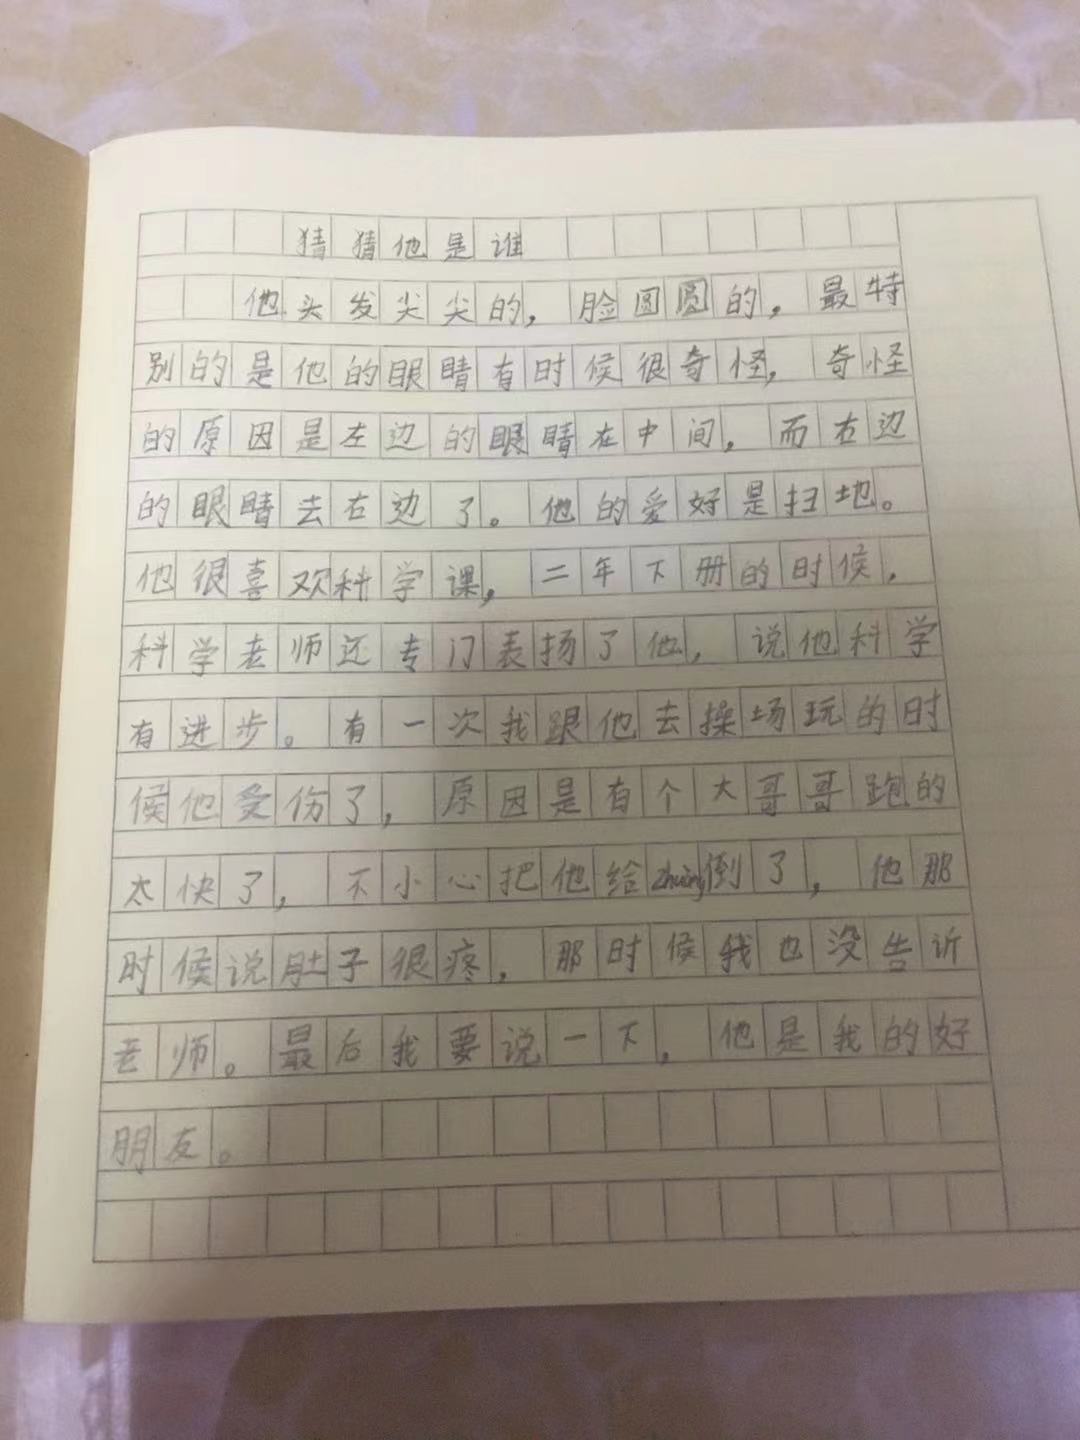 猜猜他是谁
他头发尖尖的，脸圆圆的，最特
别的是他的眼睛有时候很奇怪，奇怪
的原因是左边的眼睛在中间，而右边
的眼睛去右边了。他的爱好是扫地。
他很喜欢科学课，二年下册的时候，
科学老师还专门表扬了他，说他科学
有进步。有一次我跟他去操场玩的时
候他受伤了，原因是有个大哥哥跑的
太快了，不小心把他给zhuàng倒了，他那
时候说肚子很疼，那时候我也没告诉
老师。最后我要说一下，他是我的好
朋友。